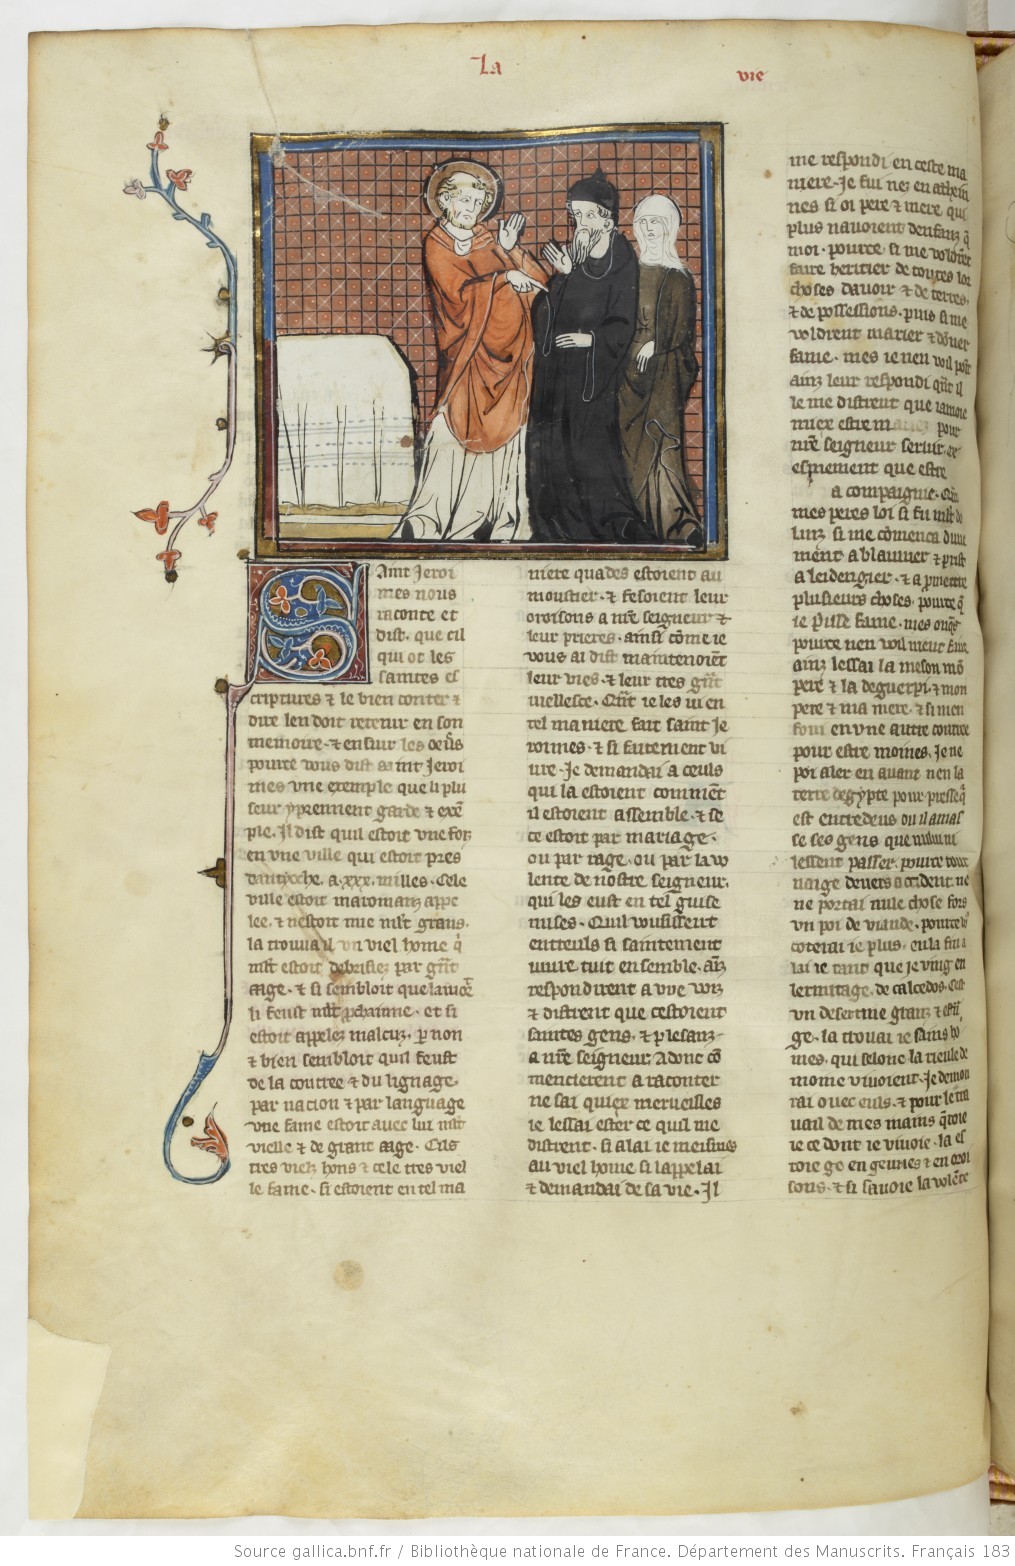 La
vie
Saint Jeroi
mes nous
raconte et
dist. que cil
qui ot les
saintes es
criptures ⁊ le bien conter ⁊
dire len doit retenir en son
memoire. ⁊ ensuir les oeuvres
pource vous dist saint Jeroi
mes vne exemple que li plu
seur ypreinnent garde ⁊ exem
ple. Il dist quil estoit vne foiz
en vne ville qui estoit pres
dantyoche. a .xxx. milles. Cele
ville estoit maromanz appe
lee. ⁊ nestoit mie mlt granz.
la trouua il vn viel home qi
mlt estoit debrisiez par grant
aage. ⁊ si sembloit que la mort
li feust mlt prochainne. et si
estoit appelez malcuz. par non
⁊ bien sembloit quil feust
de la contree ⁊ du lignage.
par nacion ⁊ par language
vne fame estoit auec lui mlt
vielle ⁊ de grant aage. Cis
tres viels hons ⁊ cele tres viel
le fame. si estoient en tel ma
niere quades estoient au
moustier. ⁊ fesoient leur
oroisons a nre seigneur ⁊
leur prieres. ainsi come ie
vous ai dist maintenoient
leur vies. ⁊ leur tres grant
viellesce. Quant ie les vi en
tel maniere fait saint Je
roimes. ⁊ si faitement vi
ure. Je demandai a ceuls
qui la estoient comment
il estoient assemble. ⁊ se
ce estoit par mariage.
ou par rage. ou par la vo
lente de nostre seigneur.
qui les eust en tel guise
mises. Quil vousissent
entreuls si saintement
viure tuit ensemble. Ainz
respondirent a vne voiz
⁊ distrent que cestoient
saintes gens. ⁊ plesanz
a nre seigneur. Adonc com
mencierent a raconter
ne sai quiex merueilles
ie lessai ester ce quil me
distrent. si alai ie meismes
au viel home si lappelai
⁊ demandai de sa vie. Il
me respondi en ceste ma
niere. Je fui nez en athein
nes si oi pere ⁊ mere qui
plus nauoient denfanz que
moi. pource si me voldrent
faire heritier de toutes lor
choses dauoir ⁊ de terres.
⁊ de possessions. puis si me
voldrent marier ⁊ doner
fame. mes ie nen voil point
ainz leur respondi quant il
le me distrent que iamoie
miex estre pour
nre seigneur seruir
espiement que estre
a compaignie.
mes peres loi si fu mlt do
lenz si me comenca dure
ment a blasmer ⁊ prist
a leidengier. ⁊ a promettre
plusieurs choses. pource que
ie preisse fame. mes onques
pource nen voil nient
ainz lessai la meson mon
pere ⁊ la deguerpi. ⁊ mon
pere ⁊ ma mere. ⁊ si men
foui en vne autre contree
pour estre moines. Je ne
poi aler en auant nen la
terre degypte pour
est entredeus ou il amas
se ses gens que
lessent passer. pource
uaige deuers occident. ne
ne portai nule chose fors
vn poi de viande. pource
coterai ie plus. en la fin
lai ie tant que je ving en
lermitage. de calcedos. cest
vn desert me granz ⁊
ge. la trouai ie sains ho
mes. qui selonc la rieule de
mome viuoient. Je demou
rai ouec euls. ⁊ pour le tra
uail de mes mains queroie
ie ce dont ie viuoie. la es
toie ge en geunes ⁊ en oroi
sons. ⁊ si sauoie la volente
Source gallica.bnf.fr / Bibliothèque nationale de France. Département des Manuscrits. Français 183